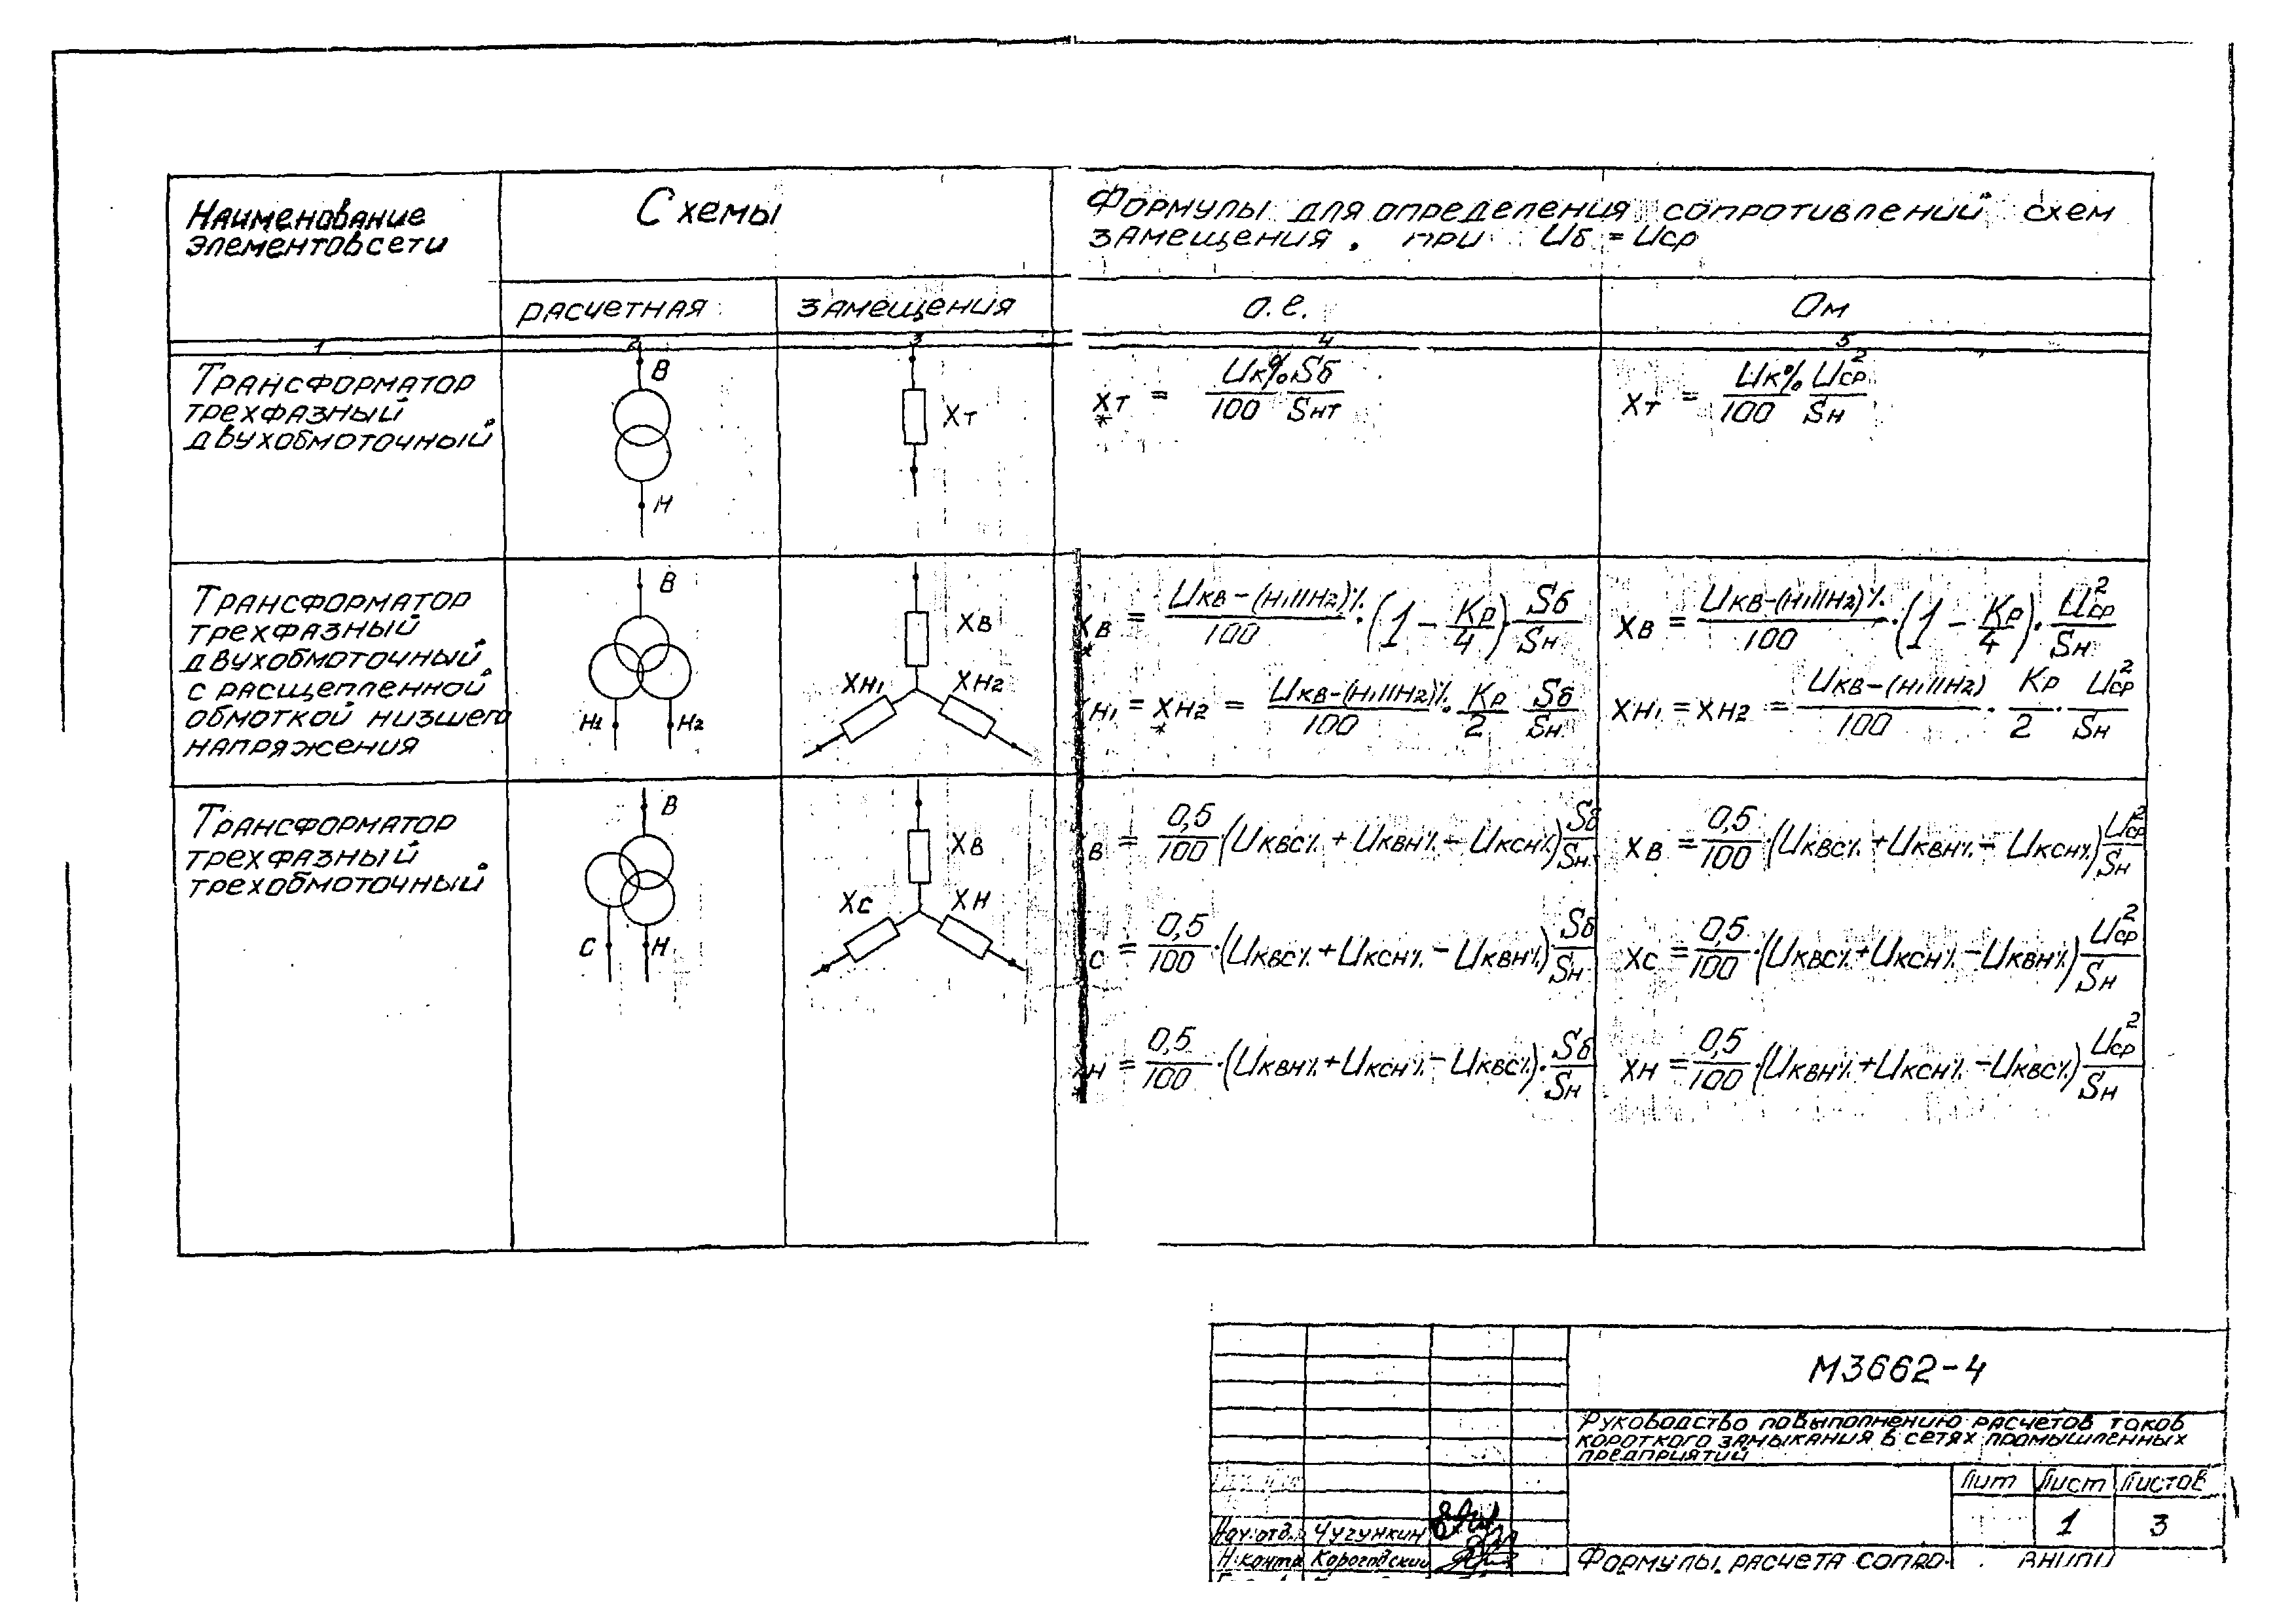 Наименование
элементов сети
Схемы
Формулы для определения сопротивлений схем
замещения, при Uб = Uср
расчетная
замещения
о.е.
Ом
1
2
3
4
5
Трансформатор
трехфазный
двухобмоточный
В
Н
Xт
X*т = Uк%/100 Sб/Sнт
Xт = Uк%/100 Uср²/Sн
Трансформатор
трехфазный
двухобмоточный
с расщепленной
обмоткой низшего
напряжения
В
Н1
Н2
XВ
XН1
XН2
X*В = UКВ-(Н1||Н2)%/100 · (1 - Кр/4) · Sб/Sн
XН1 = X*Н2 = UКВ-(Н1||Н2)%/100 · Кр/2 Sб/Sн
XВ = UКВ-(Н1||Н2)%/100 · (1 - Кр/4) · Uср²/Sн
XН1 = XН2 = UКВ-(Н1||Н2)/100 · Кр/2 · Uср²/Sн
Трансформатор
трехфазный
трехобмоточный
В
С
Н
XВ
XС
XН
В = 0,5/100 (UКВС% + UКВН% - UКСН%) Sб/Sн
С = 0,5/100 · (UКВС% + UКСН% - UКВН%) Sб/Sн
XН = 0,5/100 · (UКВН% + UКСН% - UКВС%) · Sб/Sн
XВ = 0,5/100 · (UКВС% + UКВН% - UКСН%) Uср²/Sн
XС = 0,5/100 · (UКВС% + UКСН% - UКВН%) Uср²/Sн
XН = 0,5/100 · (UКВН% + UКСН% - UКВС%) Uср²/Sн
М3662-4
Руководство по выполнению расчетов токов
короткого замыкания в сетях промышленных
предприятий
Лит Лист Листов
1 3
Нач. отд. Чугункин
Н. контр Корогодский
Формулы расчета сопро-
ВНИПИ